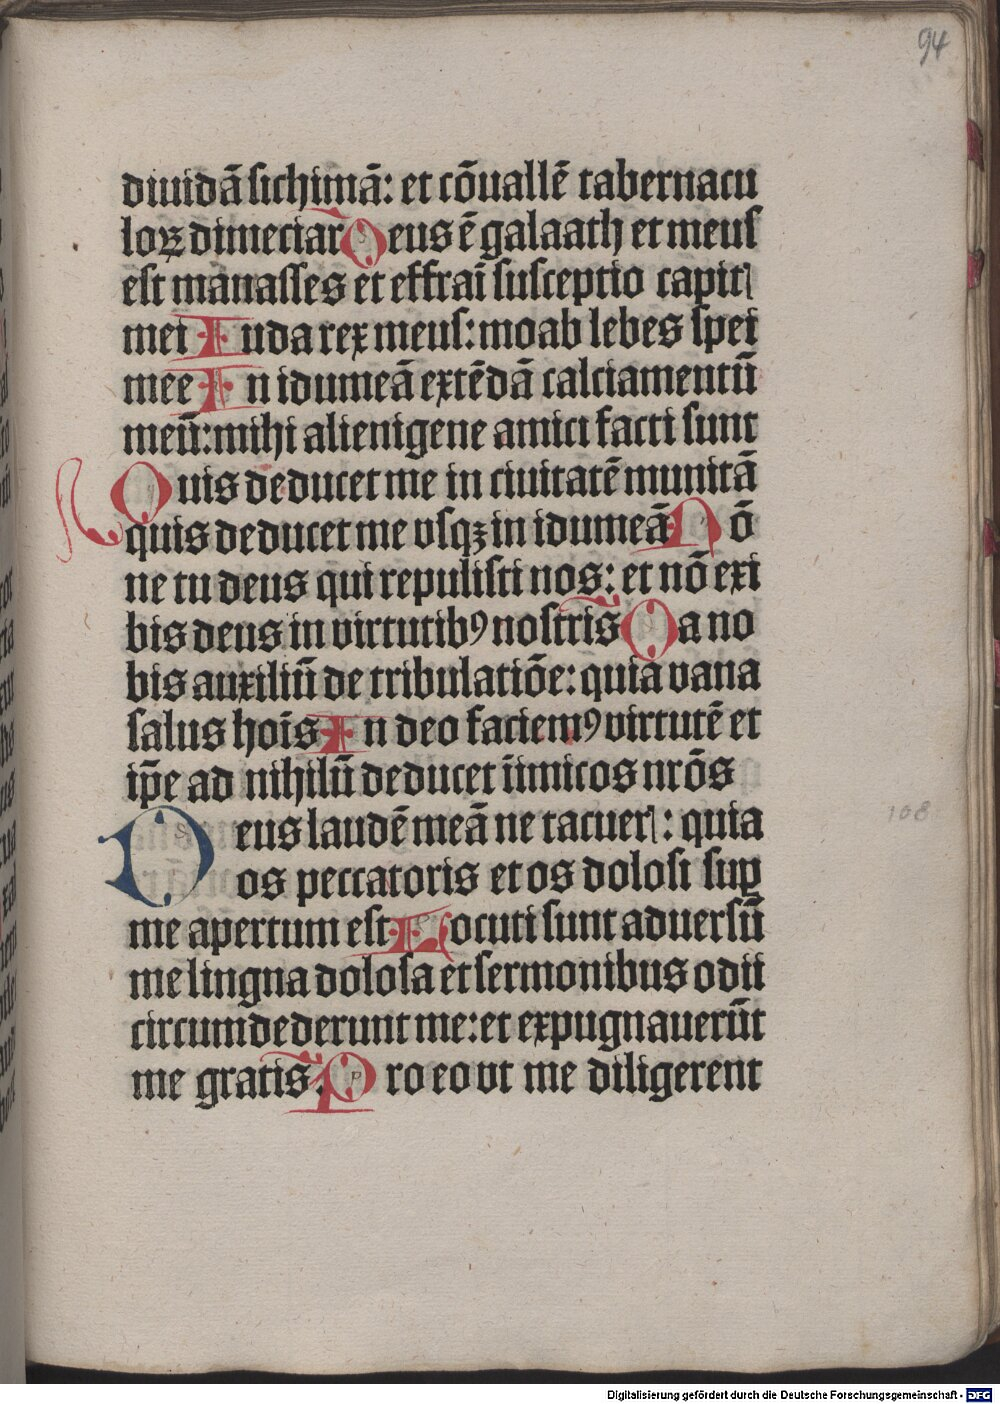 94
diuidā sichimā: et cōuallē tabernacu
loꝝ dimeciar Deus ē galaath et meus
est manasses et effraī susceptio capitꝭ
mei Iuda rex meus: moab lebes spei
mee In idumeā extēdā calciamentū
meū: mihi alienigene amici facti sunt
Quis deducet me in ciuitatē munitā
quis deducet me vsqꝫ in idumeā Nō
ne tu deus qui repulisti nos: et nō exi
bis deus in virtutibꝰ nostris Da no
bis auxiliū de tribulatiōe: quia vana
salus hoīs In deo faciemꝰ virtutē et
ip̄e ad nihilū deducet īimicos nrōs
Deus laudē meā ne tacuerꝭ: quia
os peccatoris et os dolosi suꝑ
me apertum est Locuti sunt aduersū
me lingna dolosa et sermonibus odii
circumdederunt me: et expugnauerūt
me gratis. Pro eo vt me diligerent
108
Digitalisierung gefördert durch die Deutsche Forschungsgemeinschaft - DFG